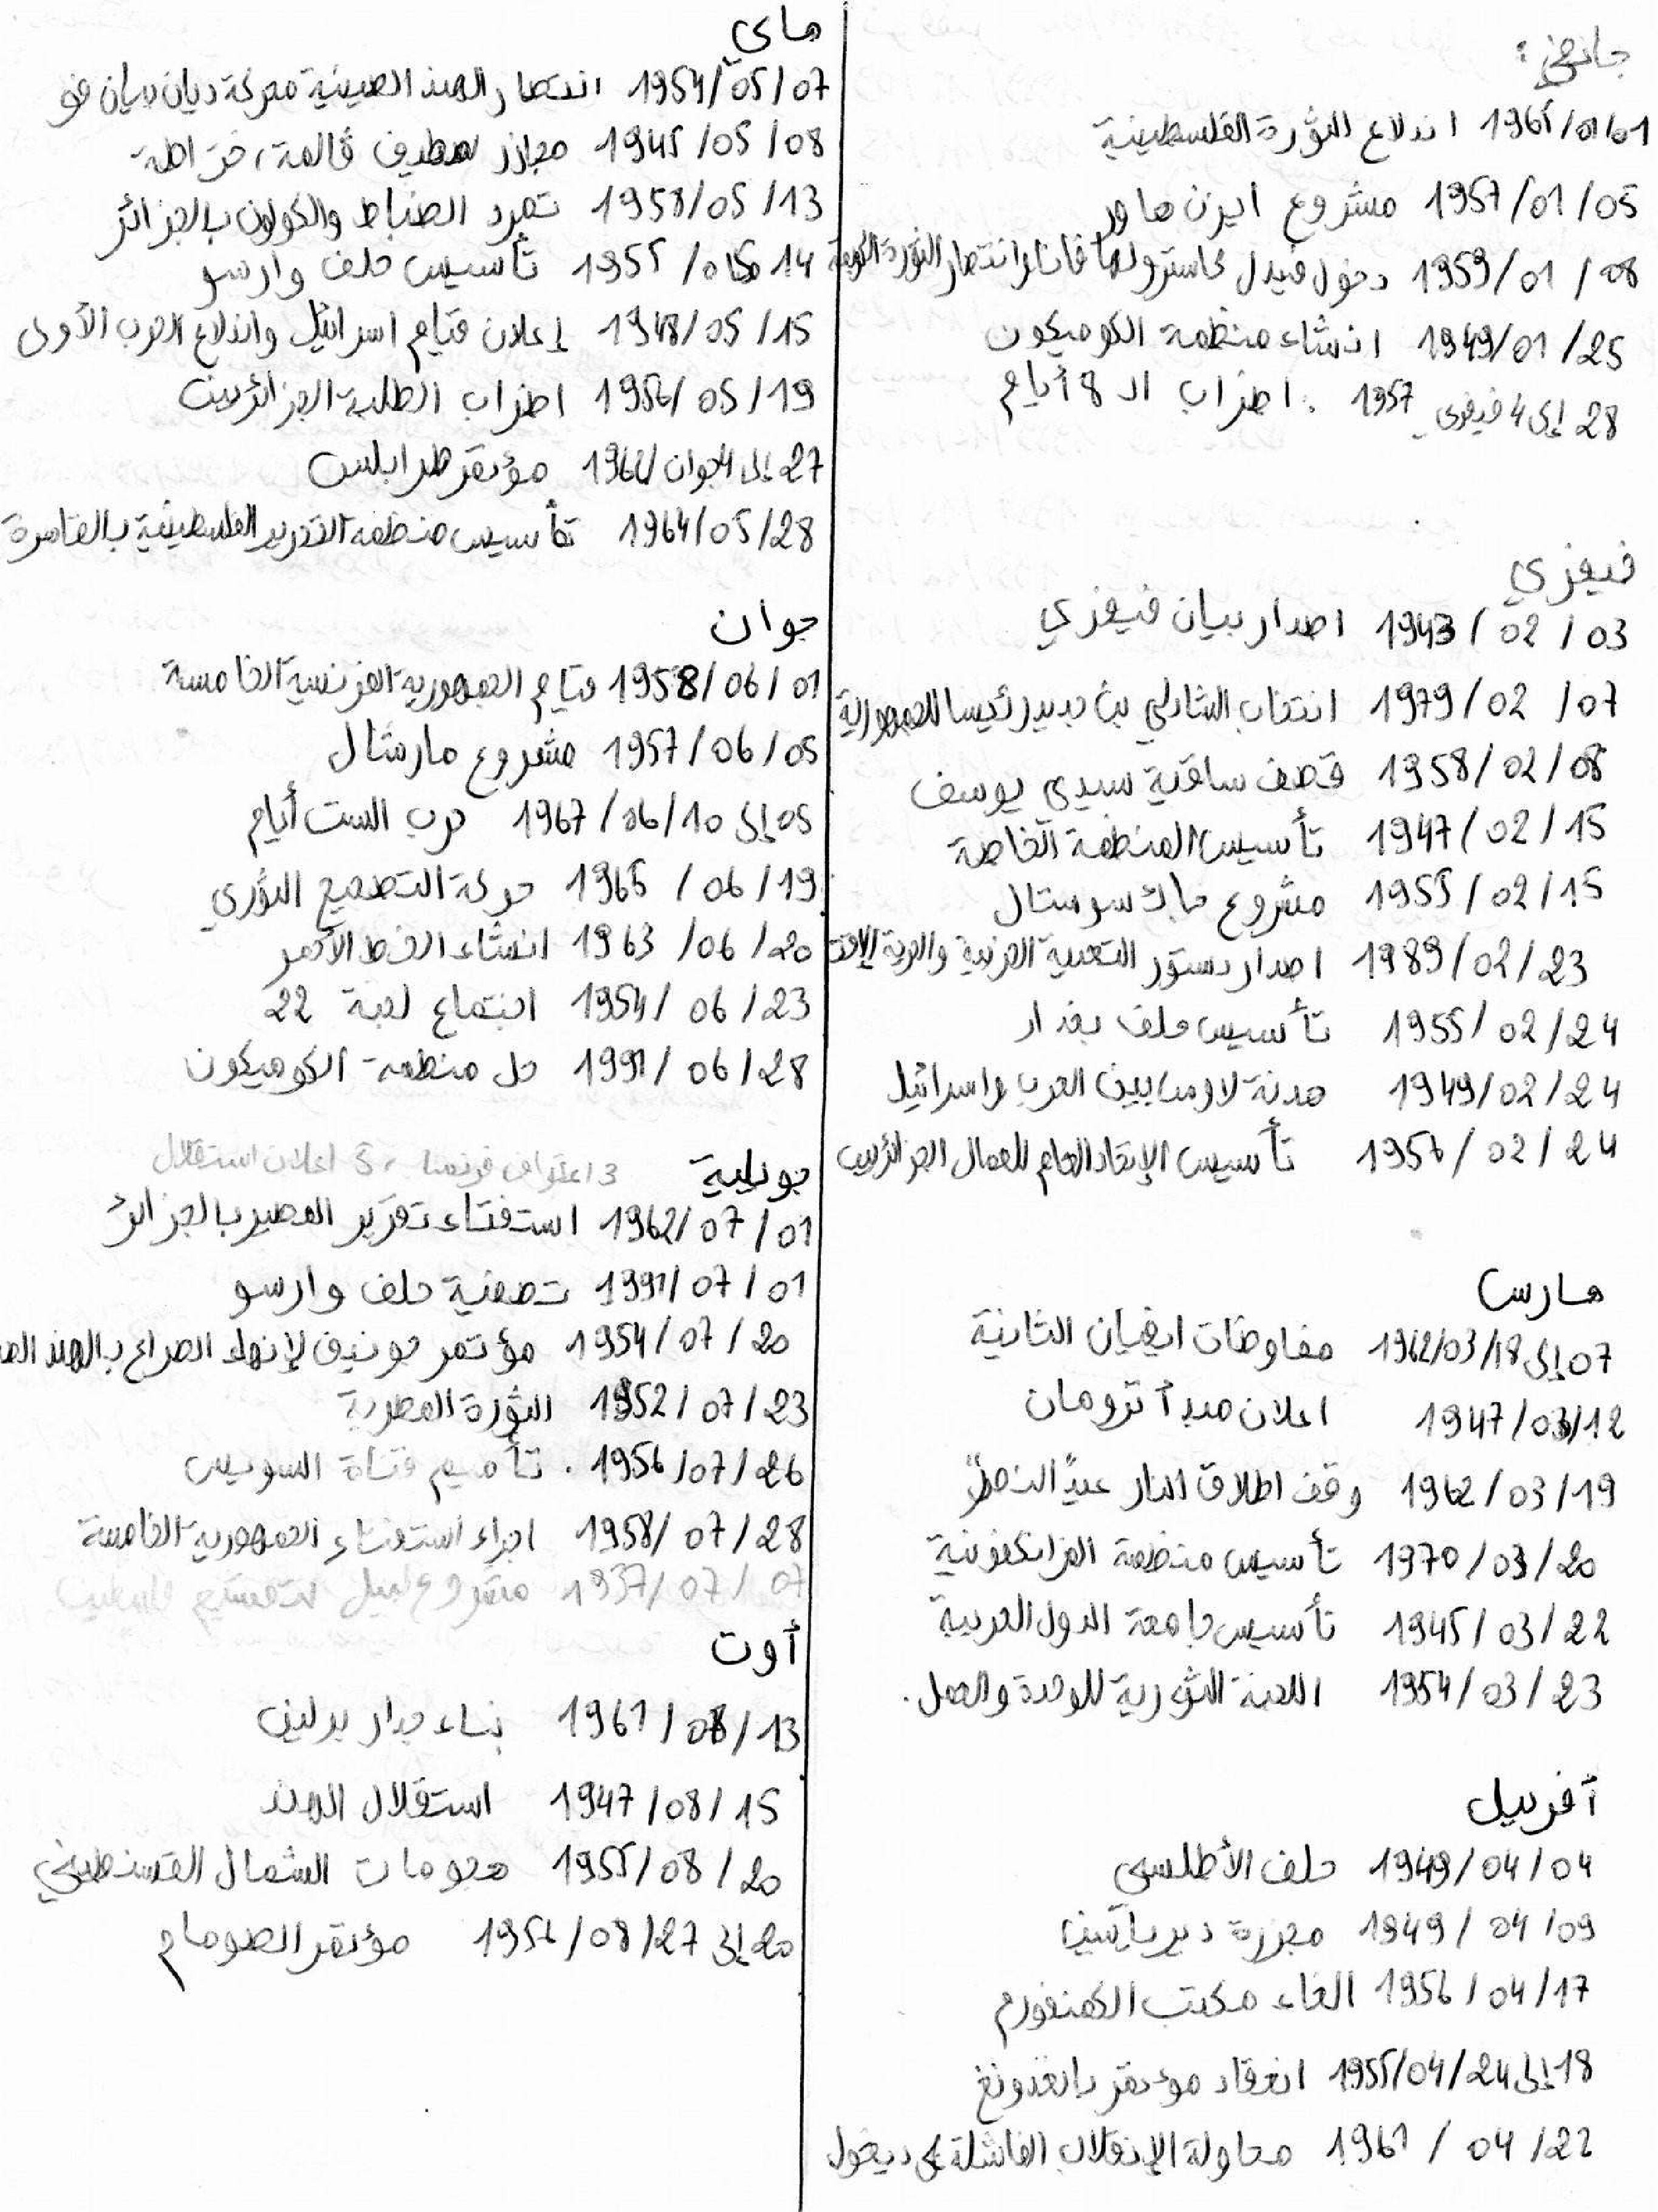 جانفي :
1965/01/01 اندلاع الثورة الفلسطينية
1957/01/05 مشروع ايزن هاور
1959/01/08 دخول فيدل كاسترو لهافانا وانتصار الثورة الكوبية
1949/01/25 انشاء منظمة الكوميكون
28 إلى 4 فيفري 1957 . اضراب الـ 8 أيام
فيفري
1943/02/03 اصدار بيان فيفري
1979/02/07 انتخاب الشاذلي بن جديد رئيسا للجمهورية
1958/02/08 قصف ساقية سيدي يوسف
1947/02/15 تأسيس المنظمة الخاصة
1955/02/15 مشروع جاك سوستال
1989/02/23 اصدار دستور التعددية الحزبية والحرية
1955/02/24 تأسيس حلف بغداد
1949/02/24 هدنة بين العرب واسرائيل
1956/02/24 تأسيس الإتحاد العام للعمال الجزائريين
مارس
07 إلى 1962/03/18 مفاوضات ايفيان الثانية
1947/03/12 اعلان مبدأ ترومان
1962/03/19 وقف اطلاق النار "عيد النصر"
1970/03/20 تأسيس منظمة الفرانكفونية
1945/03/22 تأسيس جامعة الدول العربية
1954/03/23 اللجنة الثورية للوحدة والعمل .
أفريل
1949/04/04 حلف الأطلسي
1949/04/09 مجزرة دير ياسين
1956/04/17 الغاء مكتب الكمنفورم
18 إلى 1955/04/24 انعقاد مؤتمر باندونغ
1961/04/22 محاولة الإنقلاب الفاشلة على ديغول
ماي
1954/05/07 انتصار الهند الصينية معركة ديان بيان فو
1945/05/08 مجازر سطيف قالمة، خراطة
1958/05/13 تمرد الضباط والكولون بالجزائر
1955/05/14 تأسيس حلف وارسو
1948/05/15 إعلان قيام اسرائيل واندلاع الحرب الأولى
1956/05/19 اضراب الطلبة الجزائريين
27 إلى 4 جوان/1962 مؤتمر طرابلس
1964/05/28 تأسيس منظمة التحرير الفلسطينية بالقاهرة
جوان
1958/06/01 قيام الجمهورية الفرنسية الخامسة
1957/06/05 مشروع مارشال
05 إلى 1967/06/10 حرب الست أيام
1965/06/19 حركة التصحيح الثوري
1963/06/20 انشاء الخط الأحمر
1954/06/23 اجتماع لجنة 22
1991/06/28 حل منظمة الكوميكون
جويلية 3 اعتراف فرنسا ، 5 اعلان استقلال
1962/07/01 استفتاء تقرير المصير بالجزائر
1991/07/01 تصفية حلف وارسو
1954/07/20 مؤتمر جونيف لإنهاء الصراع بالهند
1952/07/23 الثورة المصرية
1956/07/26 . تأميم قناة السويس
1958/07/28 اجراء استفتاء الجمهورية الخامسة
1937/07/07 مشروع لتقسيم فلسطين
أوت
1961/08/13 بناء جدار برلين
1947/08/15 استقلال الهند
1955/08/20 هجومات الشمال القسنطيني
20 إلى 1956/08/27 مؤتمر الصومام